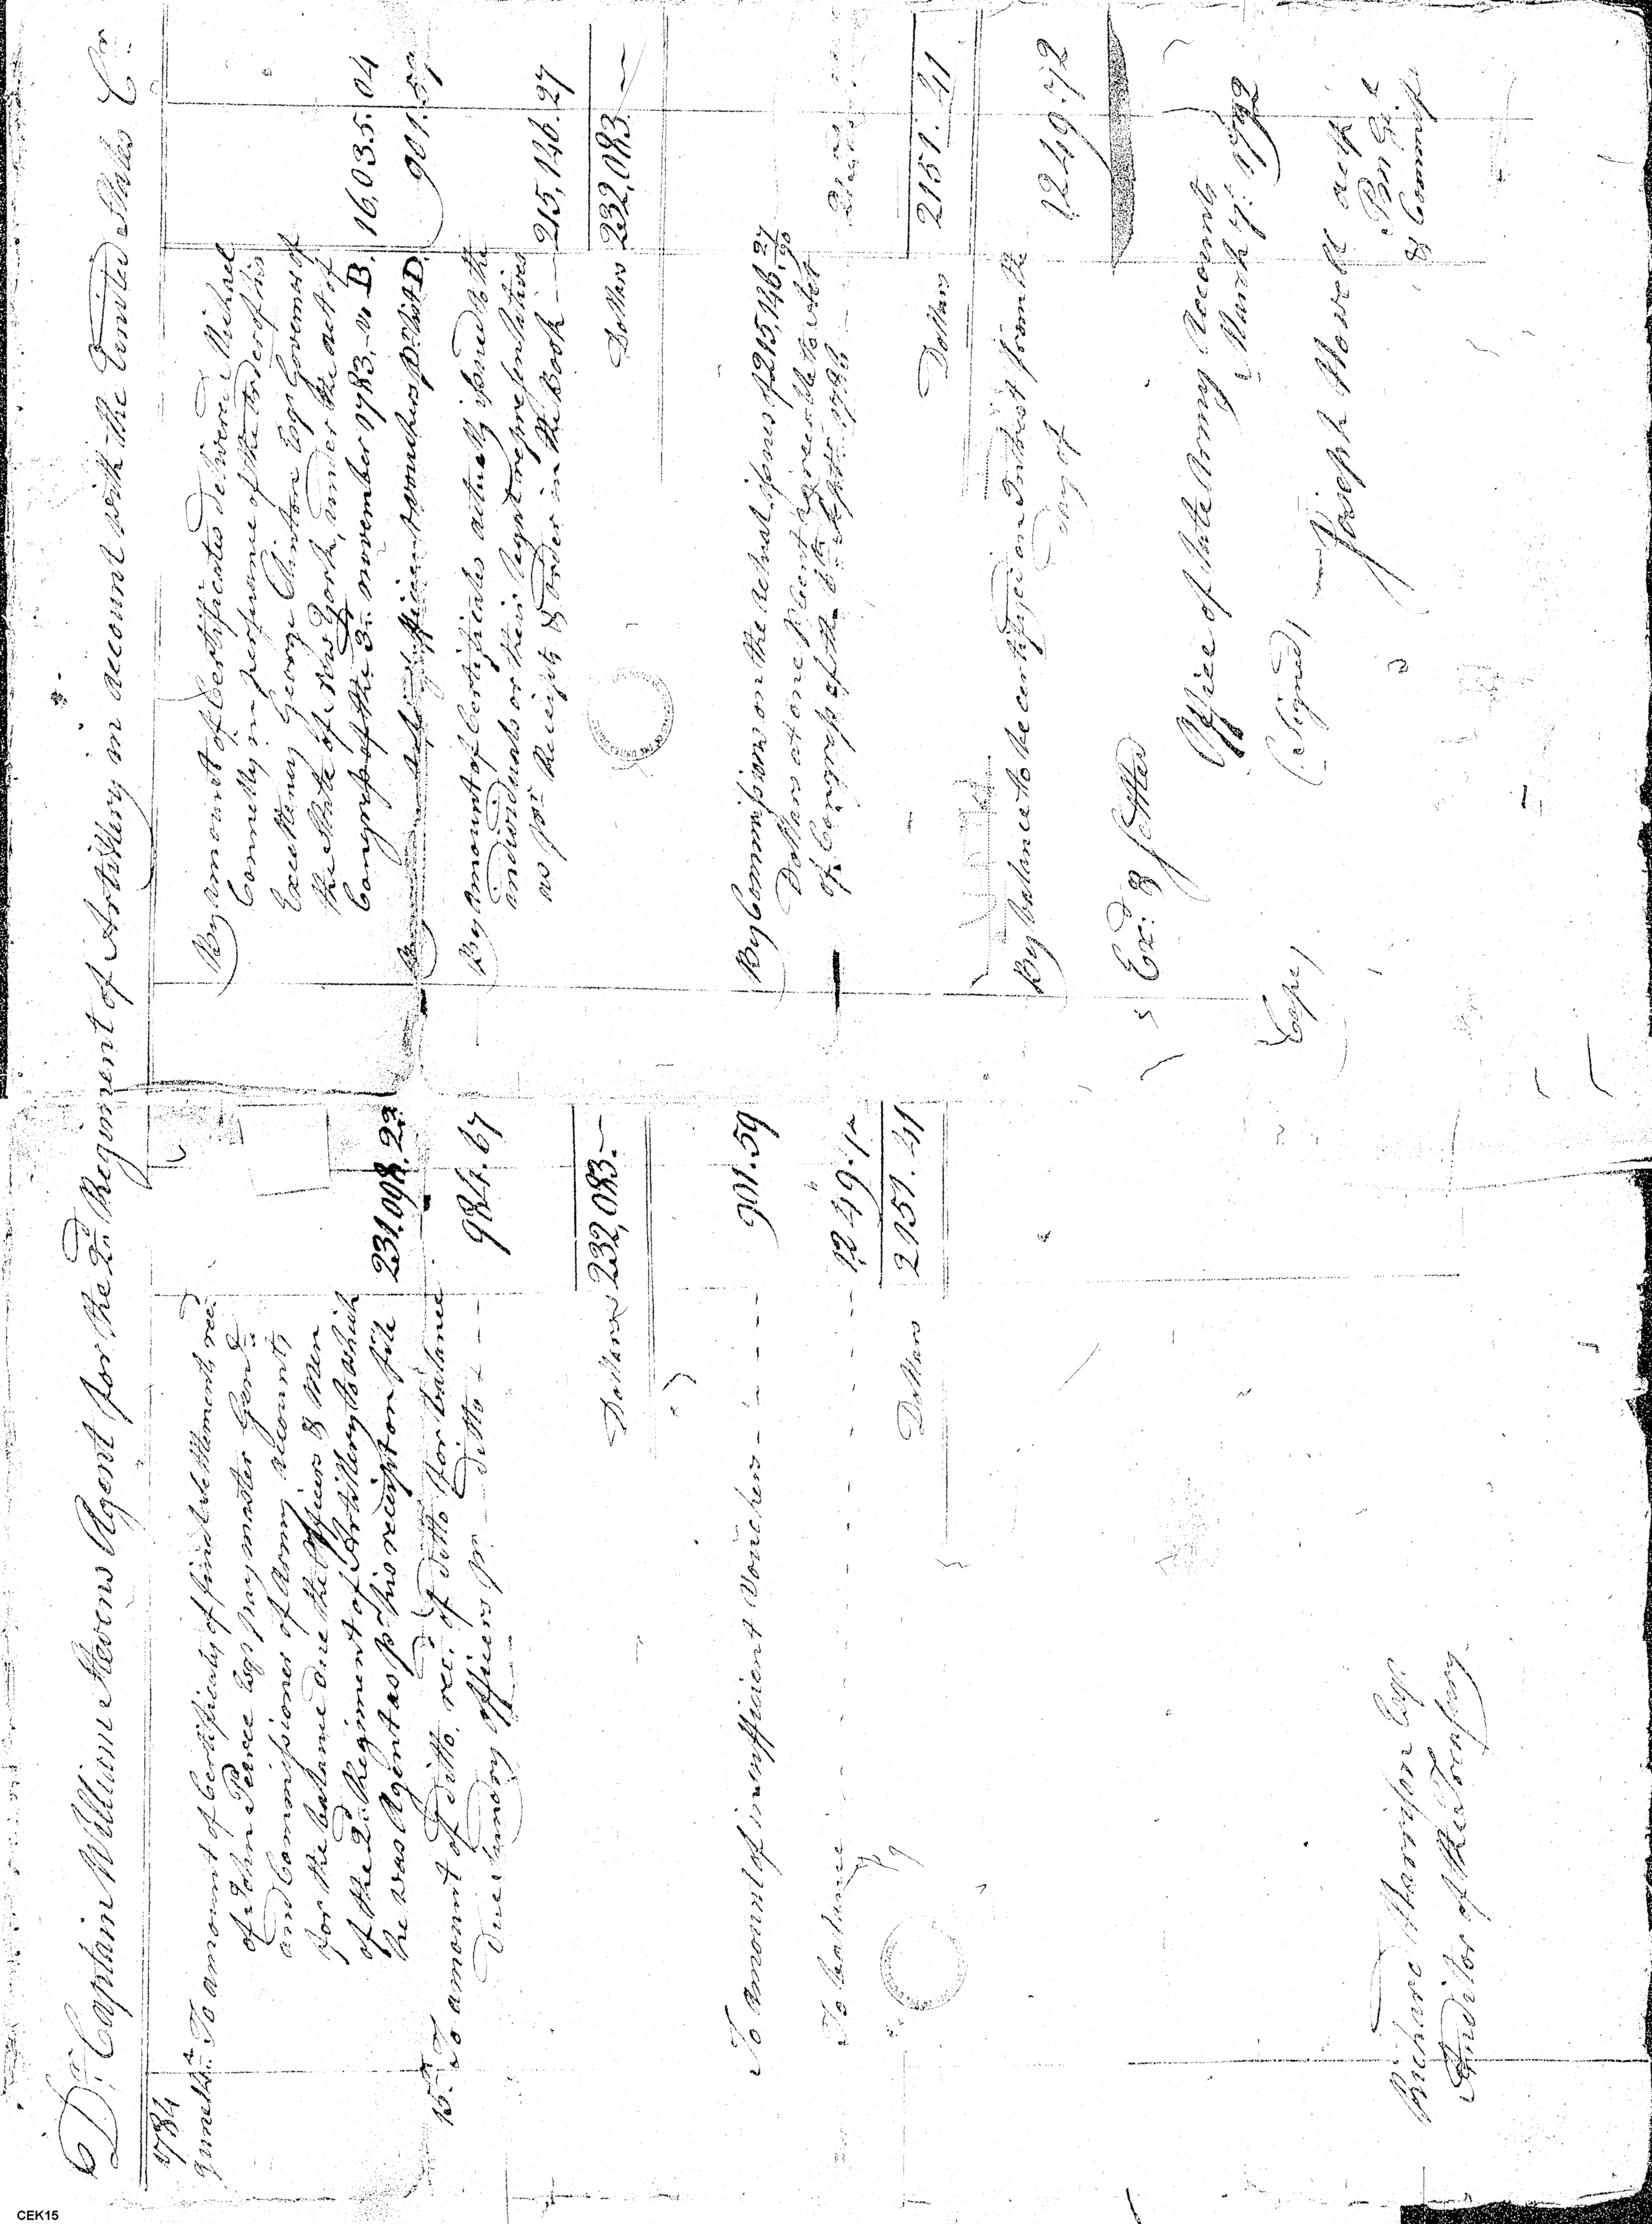 Dr. Captain William Stevens Agent for the 2d Regiment of Artillery in account with the United States Cr
1784
June
To amount of Certificates of final Settlements recd
of John Pierce Esqr paymaster Genl
and Commissioner of Army accounts
for the balance due the Officers & Men
of the 2d Regiment of Artillery to which
he was Agent as pr his receipt on file
231.098.22
15th To amount of Ditto, recd of ditto for balance
due sundry Officers pr ditto
984.67
Dollars 232,083.—
To amount of insufficient Vouchers
901.59
To balance
1249.
Dollars 2151.41
Richard Harrison Esqr
Auditor of the Treasury
By amount of Certificates delivered Michael
Connelly in persuance of the order of his
Excellency George Clinton Esqr Governor of
the State of New York, under the act of
Congress of the 3d november 1783, B.
16,035.04
insufficient vouchers pr list D.
901.59
By amount of Certificates actually issued to the
individuals or their legal representatives
as pr Receipts & order in the Book
215,146.27
Dollars 232,083.—
By Commissions on the actual issues of 215,146 27/90
Dollars at one pCent agreeable to Act
of Congress of the 6th Septr 1786
Dollars 2151.41
By balance to be certified on Interest from the
day of
1249.72
Exd: &
Office of late Army Accounts
March 7: 1792
Copy
(Signed)
Joseph Howell
& Commissr
CEK15